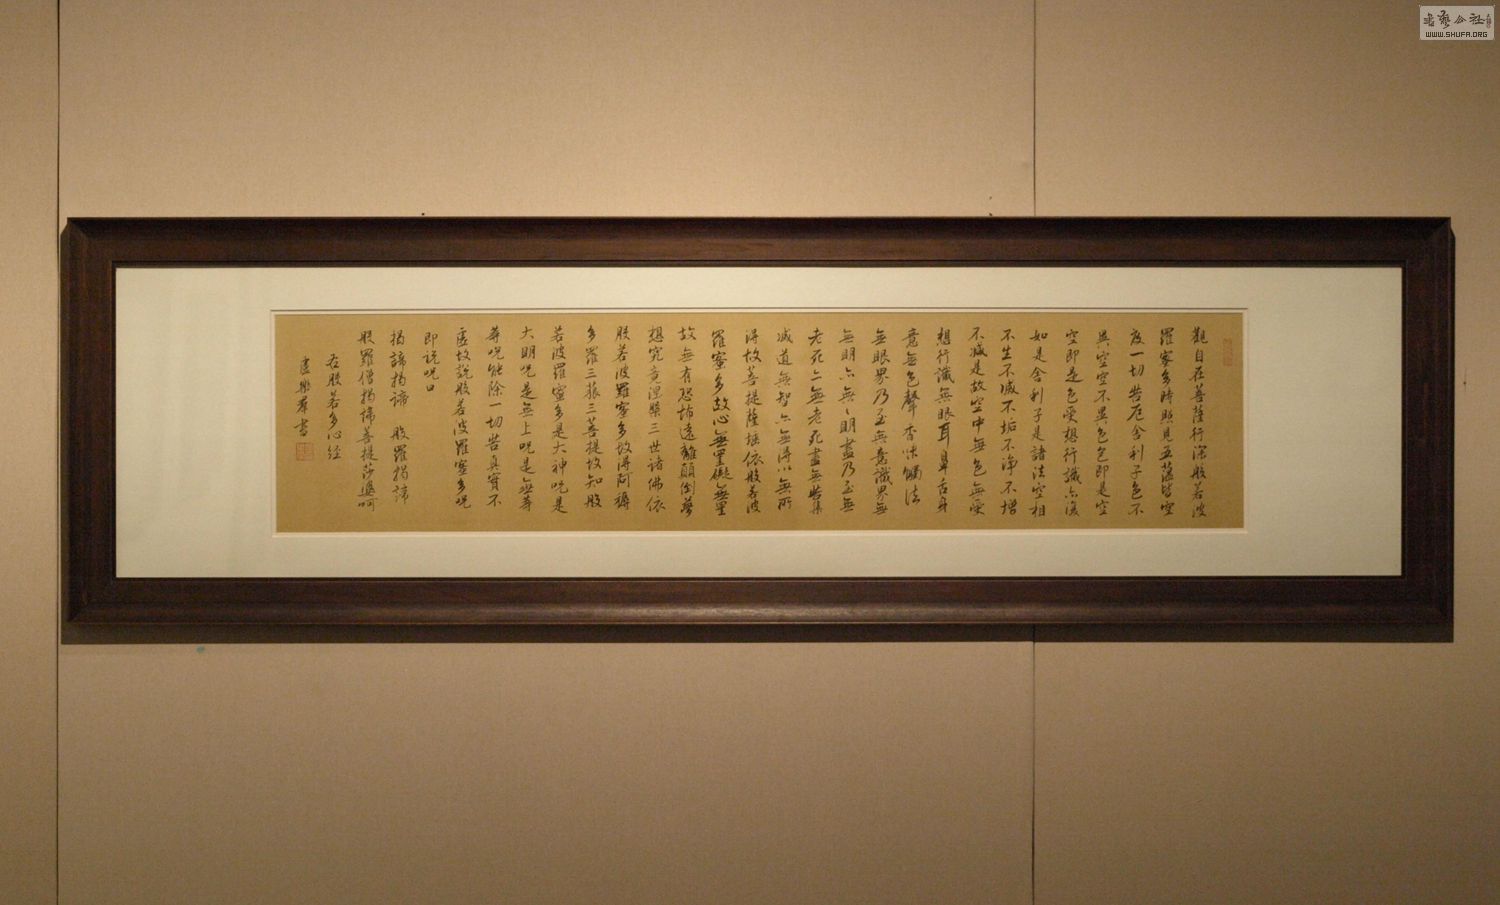 觀自在菩薩行深般若波
羅蜜多時照見五蘊皆空
度一切苦厄舍利子色不
異空空不異色色即是空
空即是色受想行識亦復
如是舍利子是諸法空相
不生不滅不垢不淨不增
不減是故空中無色無受
想行識無眼耳鼻舌身
意無色聲香味觸法
無眼界乃至無意識界無
無明亦無無明盡乃至無
老死亦無老死盡無苦集
滅道無智亦無得以無所
得故菩提薩埵依般若波
羅蜜多故心無罣礙無罣
故無有恐怖遠離顛倒夢
想究竟涅槃三世諸佛依
般若波羅蜜多故得阿耨
多羅三藐三菩提故知般
若波羅蜜多是大神咒是
大明咒是無上咒是無等
等咒能除一切苦真實不
虛故說般若波羅蜜多咒
即說咒曰
揭諦揭諦 般羅揭諦
般羅僧揭諦菩提莎婆呵
般若多心經
書
書藝公社
WWW.SHUFA.ORG